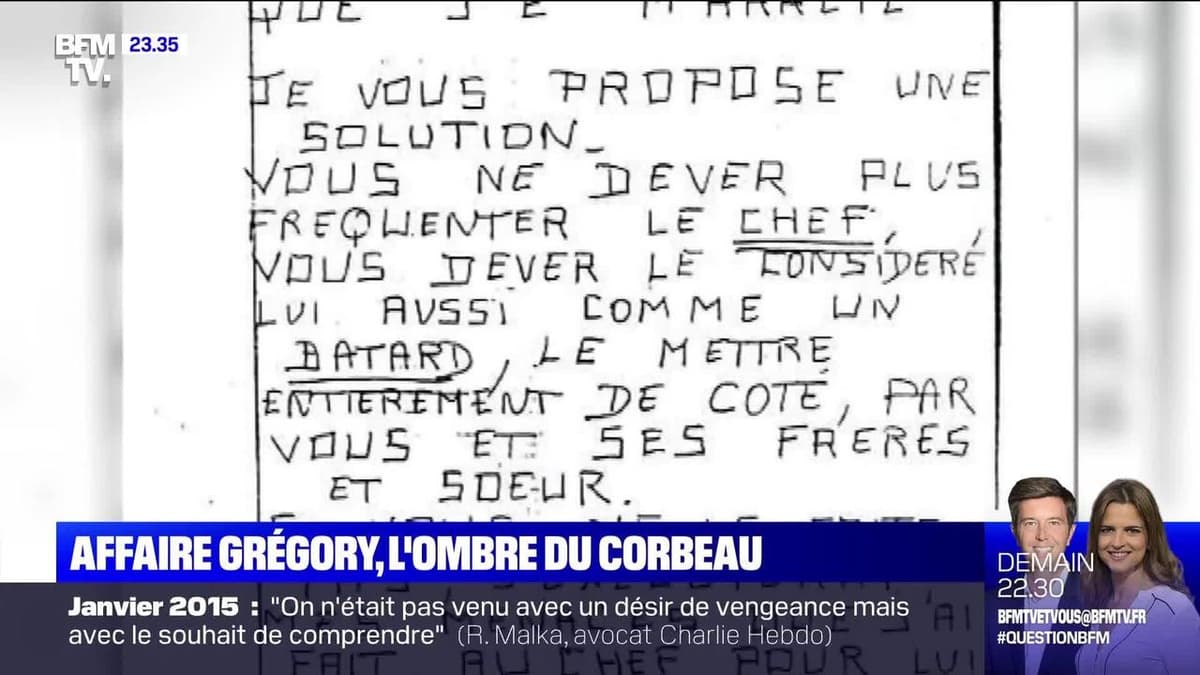 QUE JE M'ARRETE
BFM
TV.
23.35
JE VOUS PROPOSE UNE
SOLUTION_
VOUS NE DEVER PLUS
FREQUENTER LE CHEF,
VOUS DEVER LE CONSIDERÉ
LUI AUSSI COMME UN
BATARD, LE METTRE
ENTIEREMENT DE COTÉ, PAR
VOUS ET SES FRERES
ET SOEUR.
AFFAIRE GRÉGORY, L'OMBRE DU CORBEAU
Janvier 2015 : "On n'était pas venu avec un désir de vengeance mais
avec le souhait de comprendre" (R. Malka, avocat Charlie Hebdo)
FAIT AU CHEF POUR LUI
DEMAIN
22.30
BFMTVETVOUS@BFMTV.FR
#QUESTIONBFM